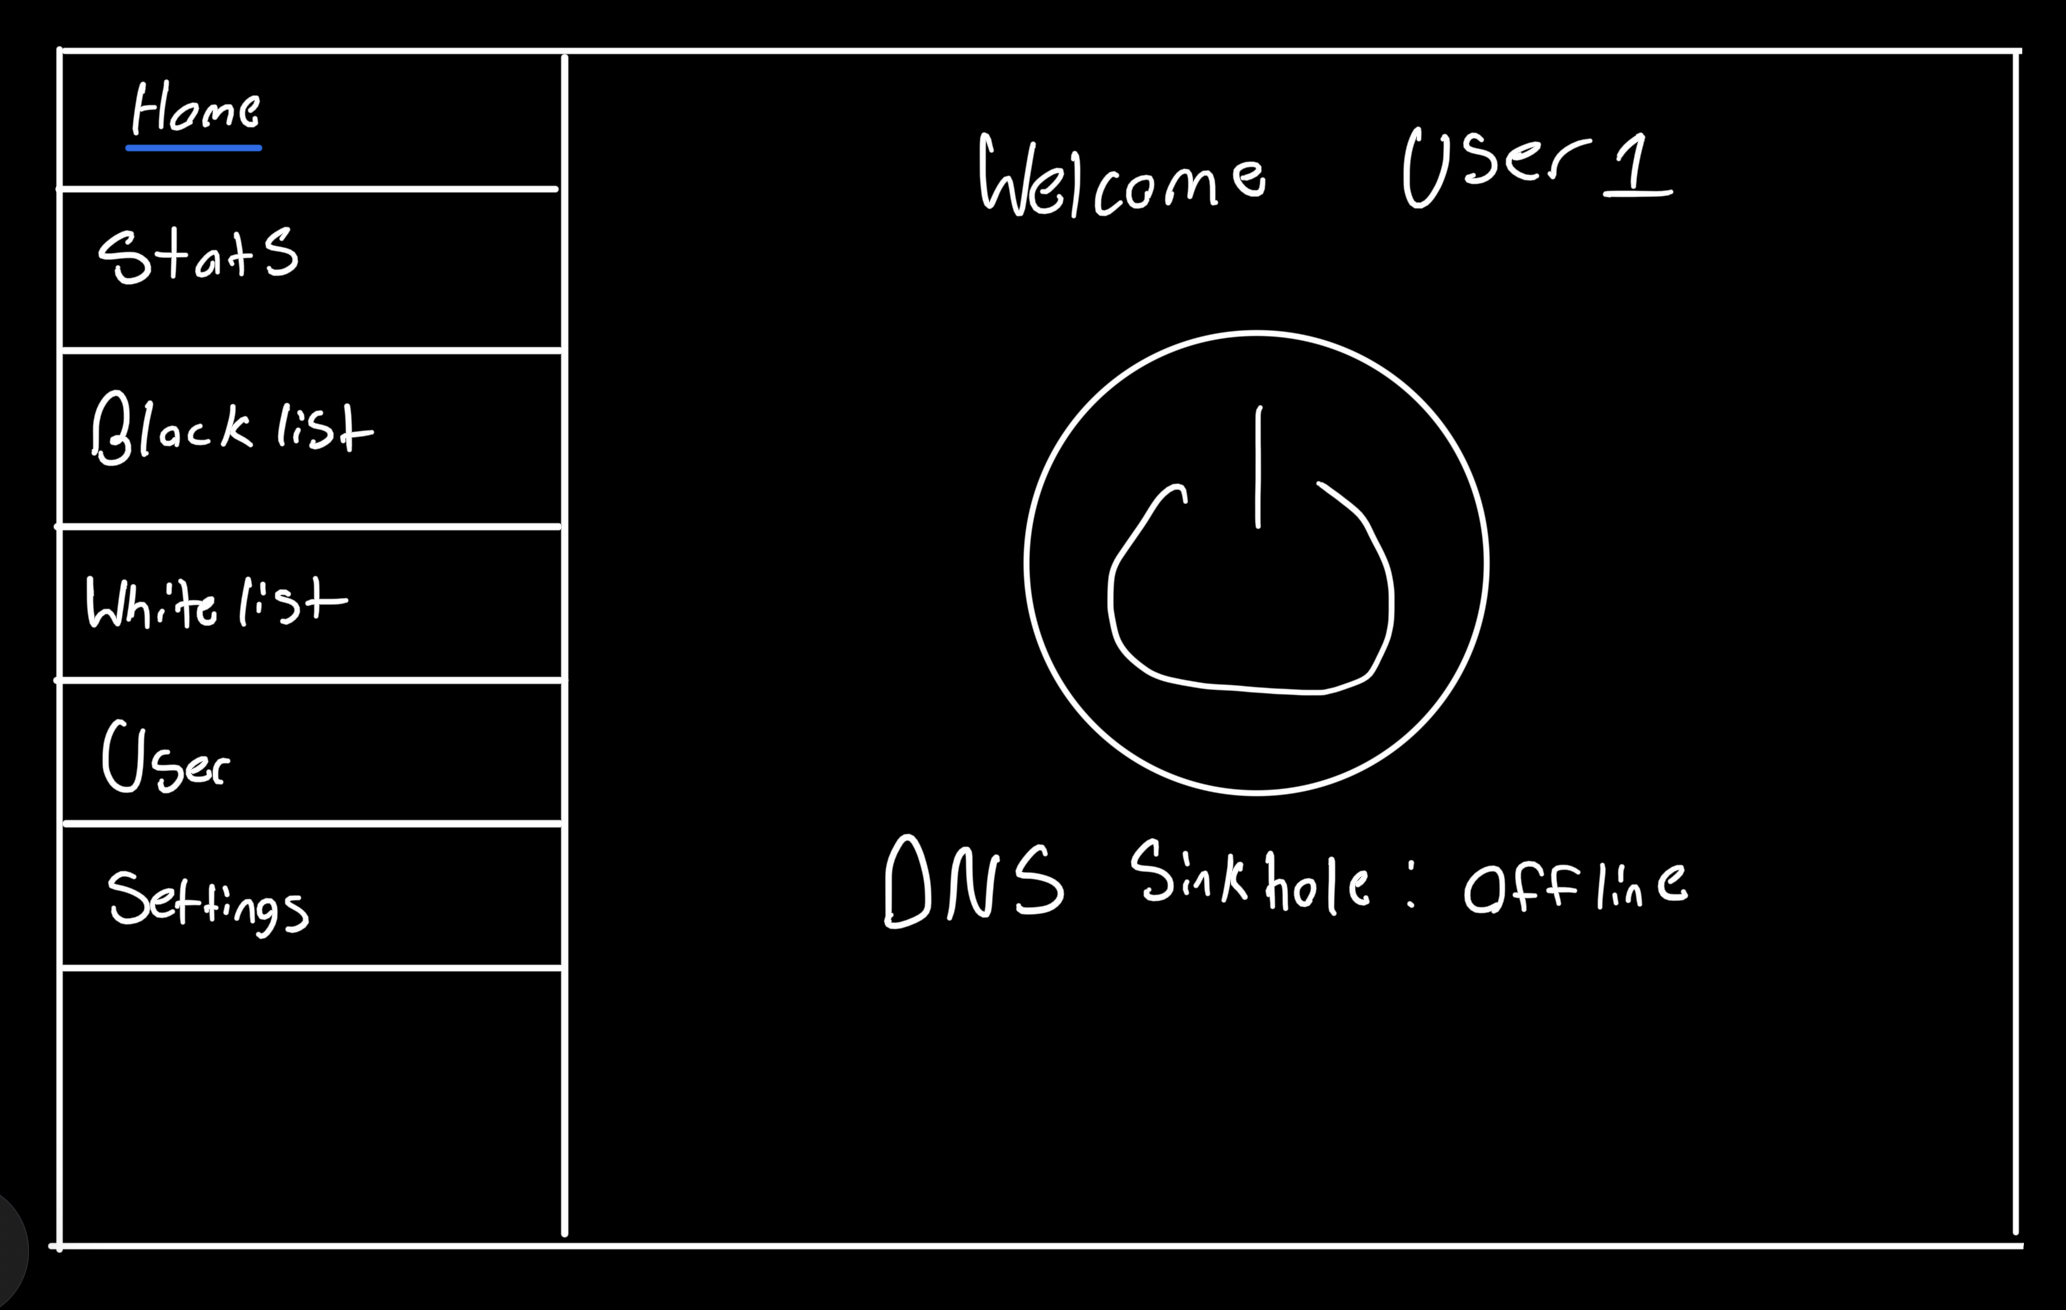 Home
Stats
Black list
White list
User
Settings
Welcome User 1
DNS Sinkhole: Offline